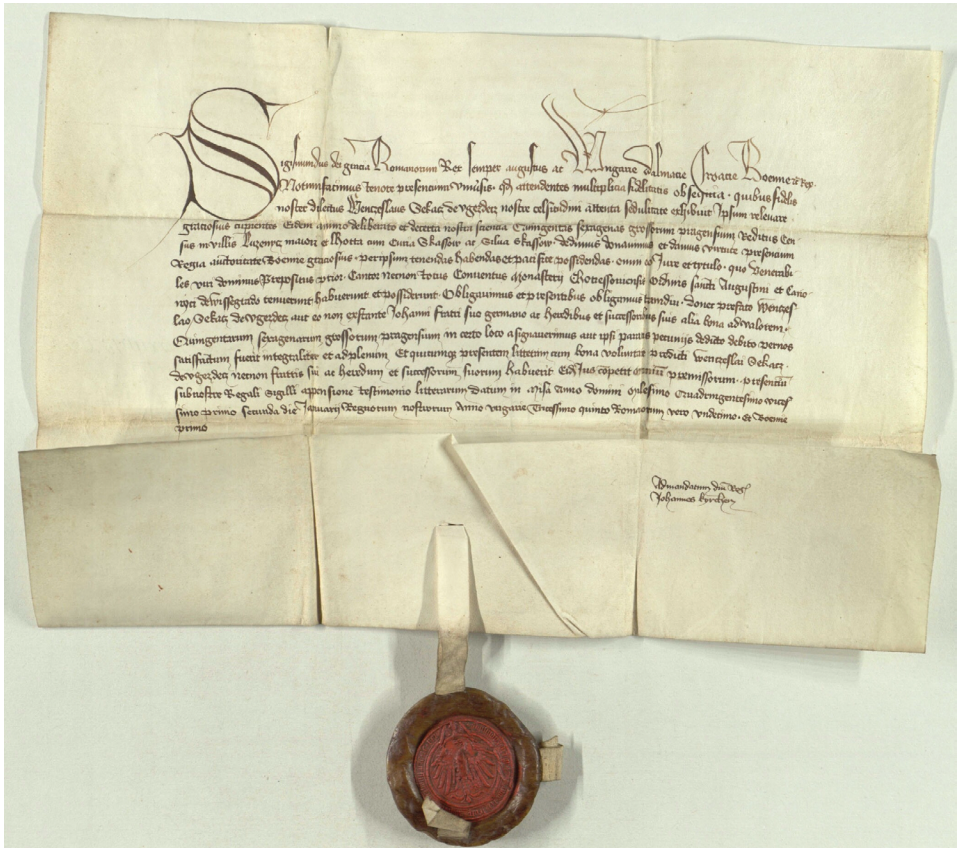 Sigismundus dei gracia Romanorum Rex semper augustus ac Vngarie dalmacie Croacie Boemie etc Rex
Notumfacimus tenore presencium vniuersis. qd attendentes multiplicia fidelitatis obsequia. quibus fidelis
noster dilectus Wenczeslaus Sekacz de vgezdecz nostre celsitudini attenta sedulitate exhibuit Ipsum releuare
graciosius cupientes Eidem animo deliberato et de certa nostra sciencia Quingentis sexagenas grossorum pragensium Reditus Cen
sus in villis maiori et lhotta cum Curia Skassow ac Silua Skassow dedimus donauimus et damus virtute presencium
Regia auctoritate Boemie graciosius. per ipsum tenendas habendas et pacifice possidendas. omni eo Jure et tytulo. quo Venerabi
les viri dominus Prepositus prior. Cantor necnon totus Conuentus Monasterij Chotiessouiensis Ordinis sancti Augustini et Cano
nyci de wissegrado tenuerunt habuerunt et possiderunt. Obligauimus et presentibus obligamus tamdiu. donec prefato Wenczes
lao Sekacz de vgezdecz aut eo non exstante Johanni fratri suo germano ac heredibus et successoribus suis alia bona ad valorem.
Quingentarum sexagenarum grossorum pragensium in certo loco assignauerimus aut ipsi paratis pecunijs de dicto debito per nos
satisfactum fuerit integraliter et ad plenum. Et quicumque presentem litteram cum bona voluntate predicti Wenczeslai Sekacz.
de vgezdecz necnon fratris sui ac heredum et successorum suorum habuerit Eidem Jus competit omnium premissorum. presencium
sub nostre Regalis Sigilli appensione testimonio litterarum datum in Anno domini Millesimo Quadringentesimo vices
simo primo secunda die Januarij Regnorum nostrorum Anno vngarie Tricessimo quinto Romanorum vero vndecimo. Et Boemie
primo
Ad mandatum dni Regis
Johannes kyrchen